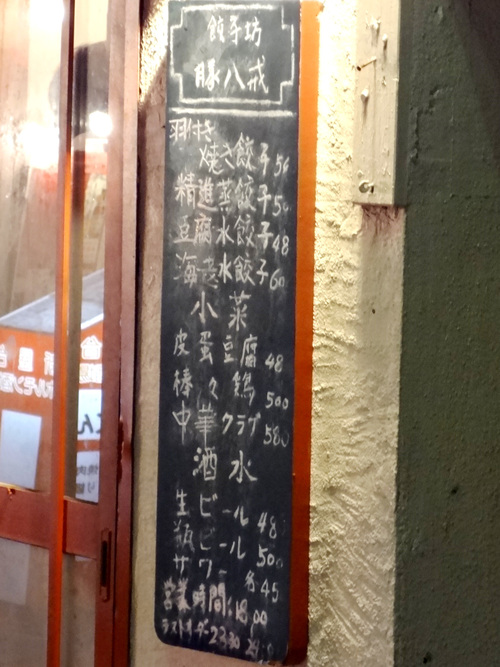 餃子坊
豚八戒
羽付き
焼き餃子
精進蒸餃子
豆腐水餃子48
海老水餃子60
小菜
皮蛋豆腐48
棒々鶏500
中華クラゲ580
酒水
生ビール48
瓶ビール500
サワー各45
営業時間18:00
ラストオーダー23:30